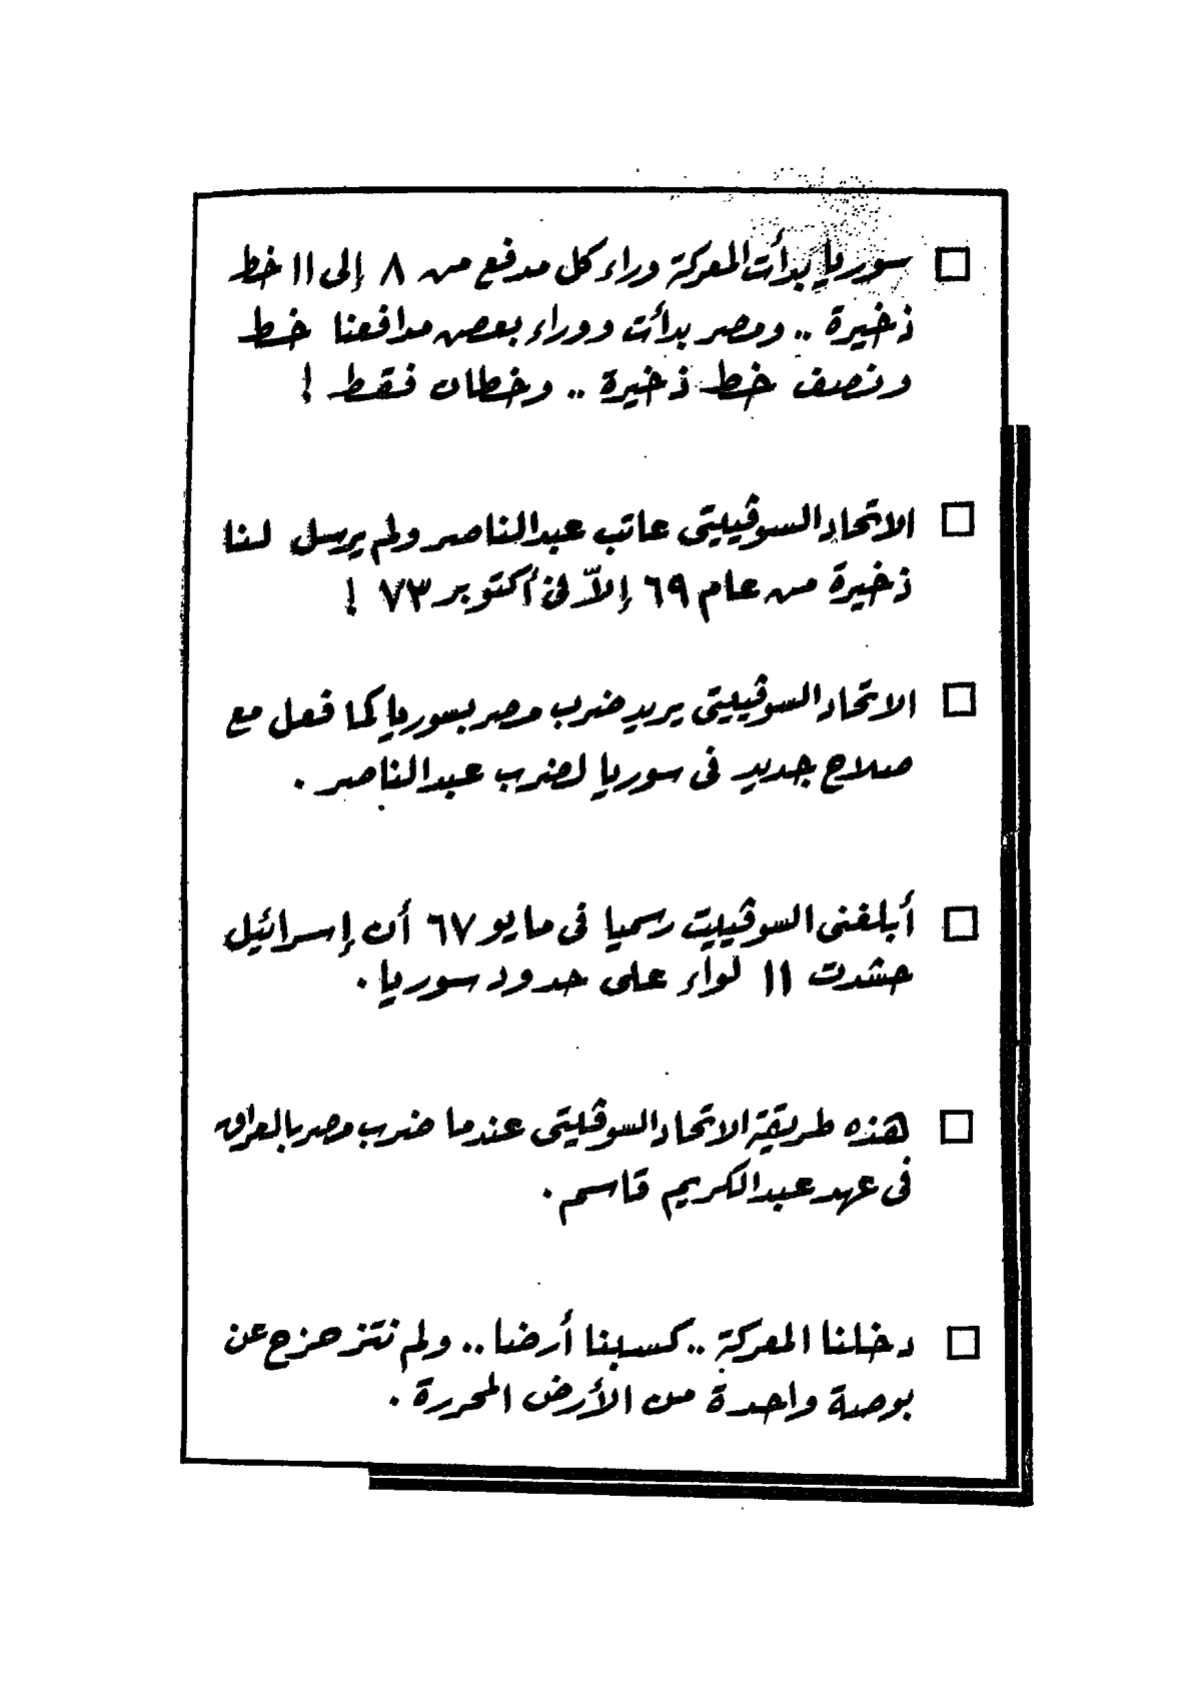 □ سوريا بدأت المعركة وراء كل مدفع من ٨ إلى ١١ خط
ذخيرة .. ومصر بدأت ووراء بعض مدافعنا خط
ونصف خط ذخيرة .. وخطان فقط !
□ الاتحاد السوڤييتى عاتب عبد الناصر ولم يرسل لنا
ذخيرة من عام ٦٩ إلاّ فى أكتوبر ٧٣ !
□ الاتحاد السوڤييتى يريد ضرب مصر بسوريا كما فعل مع
صلاح جديد فى سوريا لضرب عبد الناصر .
□ أبلغنى السوڤييت رسميا فى مايو ٦٧ أن إسرائيل
حشدت ١١ لواء على حدود سوريا .
□ هذه طريقة الاتحاد السوڤيتى عندما ضرب مصر بالعراق
فى عهد عبد الكريم قاسم .
□ دخلنا المعركة .. كسبنا أرضا .. ولم نتزحزح عن
بوصة واحدة من الأرض المحررة .